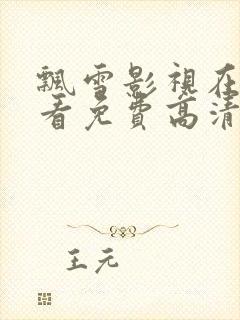 飄雪影視在
看免費高清
王元